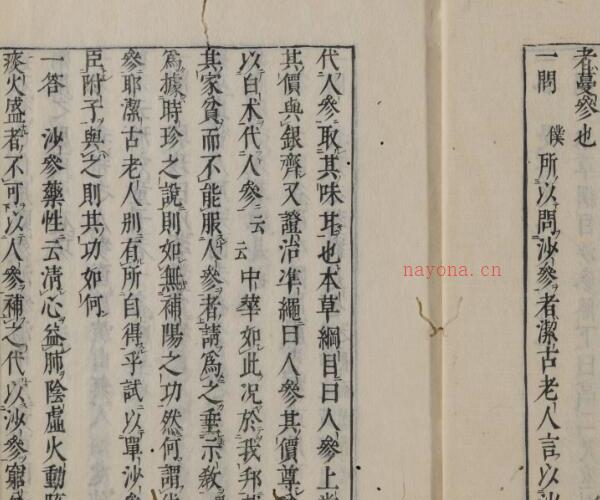 者蔓參也
一問 僕 所以問沙參者潔古老人言以沙
代人參取其味甘也本草綱目曰人參上黨
其價與銀齊又證治準繩曰人參其價尊
以白朮代人參云云中華如此况於我邦
其家貧而不能服人參者請爲之垂示教
爲據時珍之說則如無補陽之功然何謂
參耶潔古老人別有所自得乎試以單沙
臣附子與之則其功如何
一答 沙參藥性云清心益肺陰虛火動
痰火盛者不可以人參補之代以沙參窮
nayona.cn